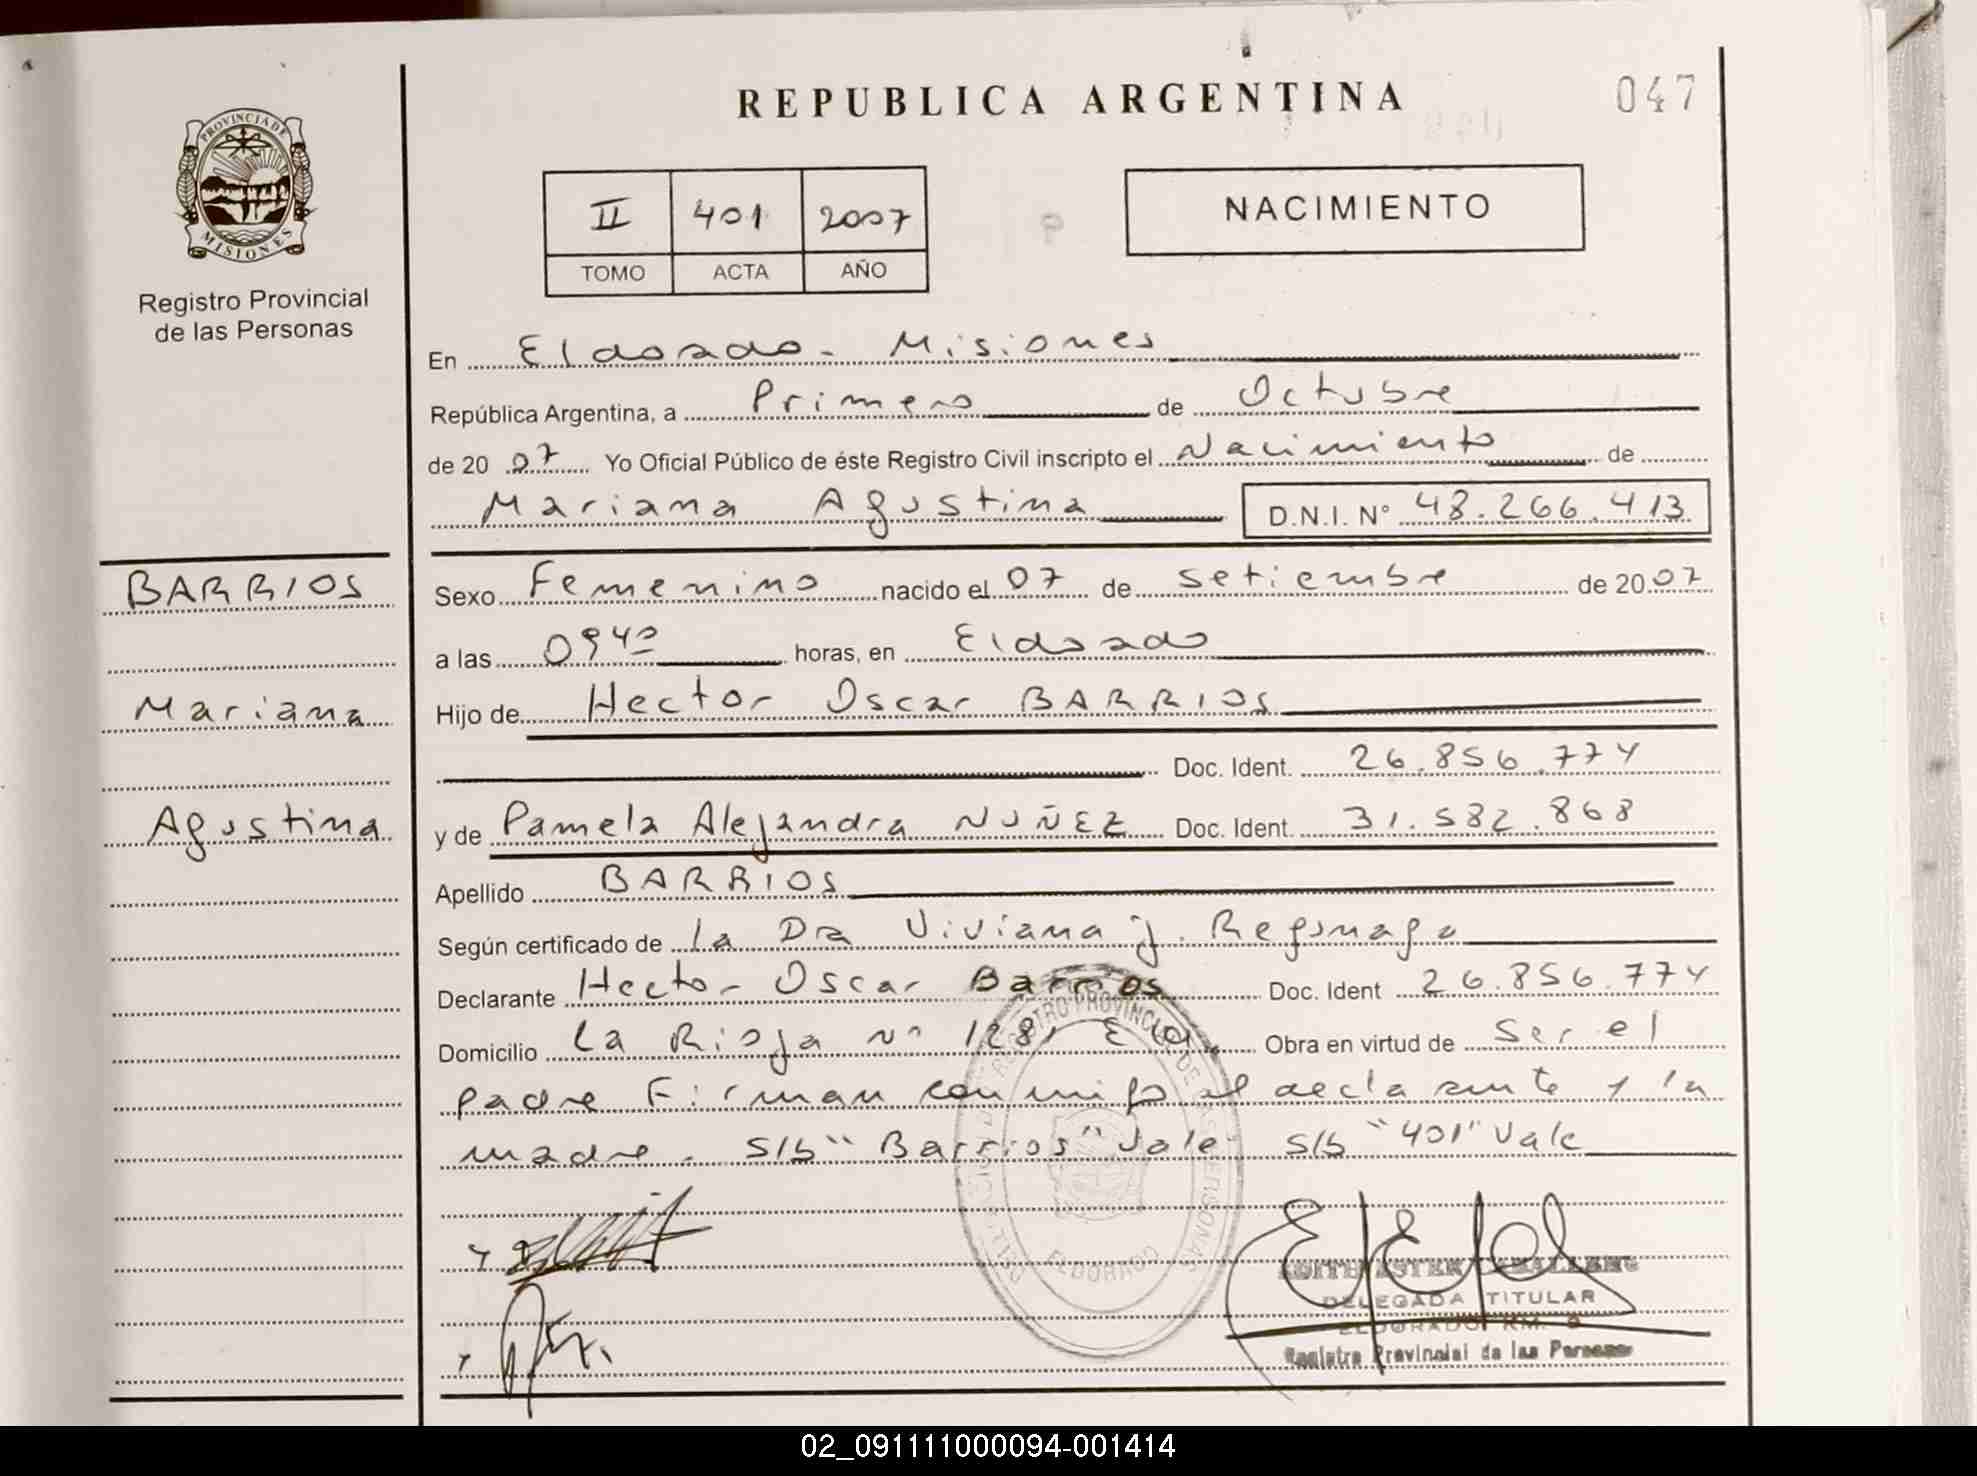 REPUBLICA ARGENTINA
047
PROVINCIA DE
MISIONES
Registro Provincial
de las Personas
II 401 2007
TOMO ACTA AÑO
NACIMIENTO
En Eldorado - Misiones
República Argentina, a Primero de Octubre
de 20 07 Yo Oficial Público de éste Registro Civil inscripto el Nacimiento de
Mariana Agustina D.N.I. N° 48.266.413
BARRIOS
Mariana
Agustina
Sexo Femenino nacido el 07 de Setiembre de 2007
a las 0940 horas, en Eldorado
Hijo de Hector Oscar BARRIOS
Doc. Ident. 26.856.774
y de Pamela Alejandra NUÑEZ Doc. Ident. 31.582.868
Apellido BARRIOS
Según certificado de la Dra Viviana J.
Declarante Hector Oscar Barrios Doc. Ident 26.856.774
Domicilio La Rioja nº 128, Obra en virtud de Ser el
padre Firman conmigo el declarante y la
madre - S/b "Barrios" Vale S/b "401" Vale
ELDORADO
DELEGADA TITULAR
ELDORADO KM. 9
Registro Provincial de las Personas
02_091111000094-001414